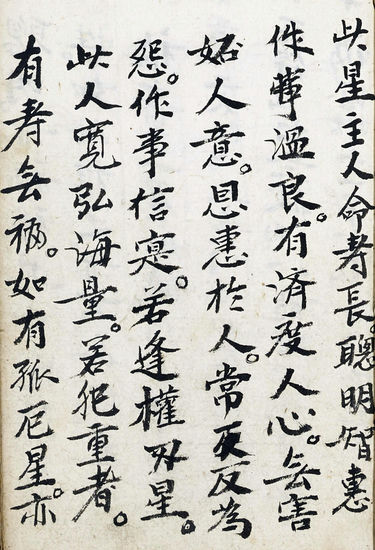 此星主人命寿長。聰明智惠
作事溫良。有済度人心。无害
妬人意。恩惠於人。常反反為
怨。作事信寔。若逢權刃星。
此人寬弘海量。若犯重者。
有寿无福。如有孤厄星。亦